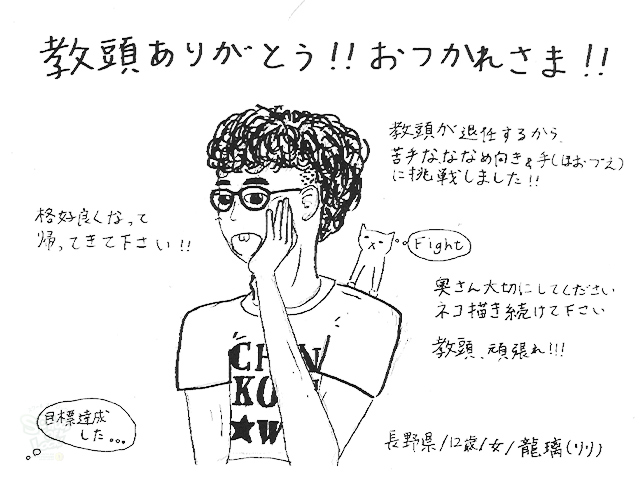 教頭ありがとう!!おつかれさま!!
教頭が退任するから、
苦手なななめ向き&手(ほおづえ)
に挑戦しました!!
格好良くなって
帰ってきて下さい!!
Fight
奥さん大切にしてください
ネコ描き続けて下さい
教頭、頑張れ!!!
目標達成
した...
長野県/12歳/女/龍璃(リリ)